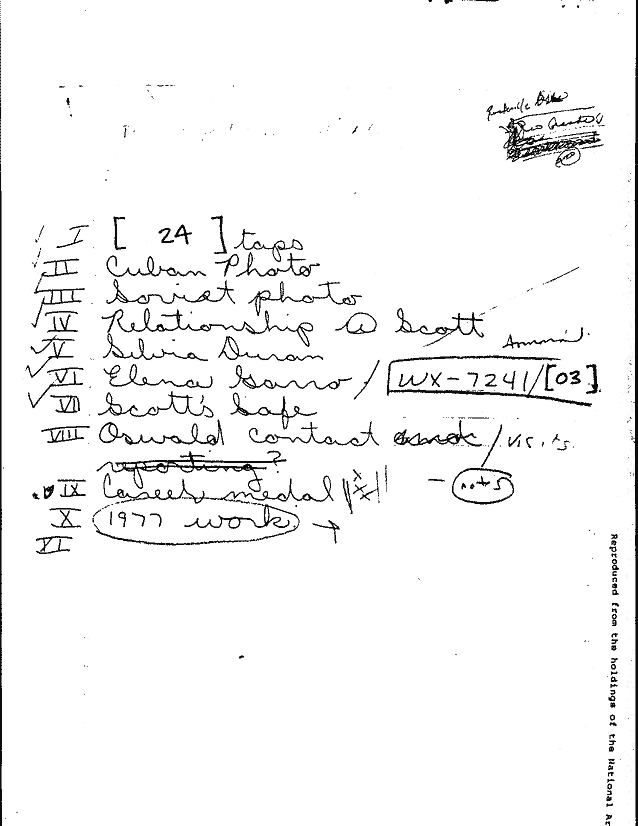 I [ 24 ] taps
II Cuban Photo
III Soviet photo
IV Relationship @ Scott
V Silvia Duran
VI Elena Garro / WX-7241/[03]
VII Scott's Safe
VIII Oswald contact / visits
reporting?
IX Career medal - notes
X 1977 work →
XI
Reproduced from the holdings of the National Ar